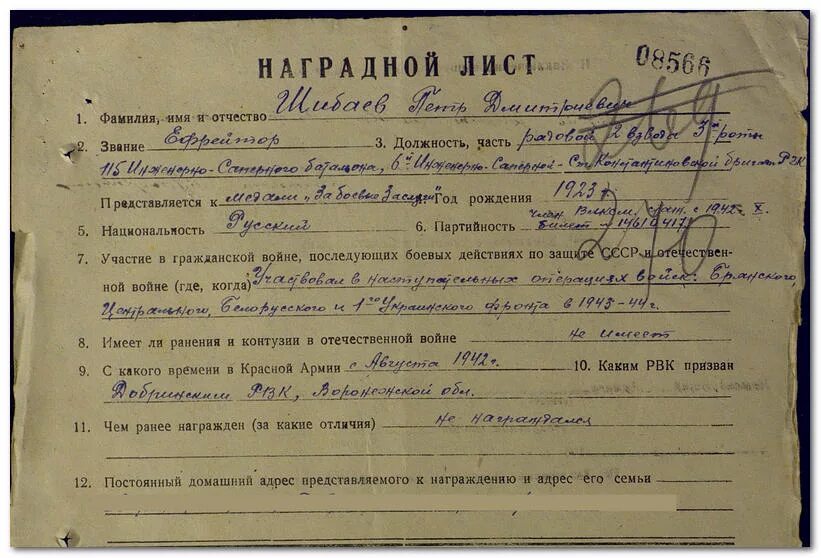 НАГРАДНОЙ ЛИСТ 08566
1. Фамилия, имя и отчество Шибаев Петр Дмитриевич
2. Звание Ефрейтор 3. Должность, часть рядовой 2 взвода 3й роты
115 Инженерно-Саперного батальона, 6й Инженерно-Саперной-Ст. Константиновской бригады РГК
Представляется к медали „За боевые Заслуги" Год рождения 1923 г.
член ВЛКСМ. с 1942 X.
5. Национальность Русский 6. Партийность билет 14610417
7. Участие в гражданской войне, последующих боевых действиях по защите СССР и отечествен-
ной войне (где, когда) Участвовал в наступательных операциях войск: Брянского,
Центрального, Белорусского и 1го Украинского фронта в 1943-44г.
8. Имеет ли ранения и контузии в отечественной войне не имеет
9. С какого времени в Красной Армии с Августа 1942г. 10. Каким РВК призван
Добринским РВК, Воронежской обл.
11. Чем ранее награжден (за какие отличия) не награждался
12. Постоянный домашний адрес представляемого к награждению и адрес его семьи